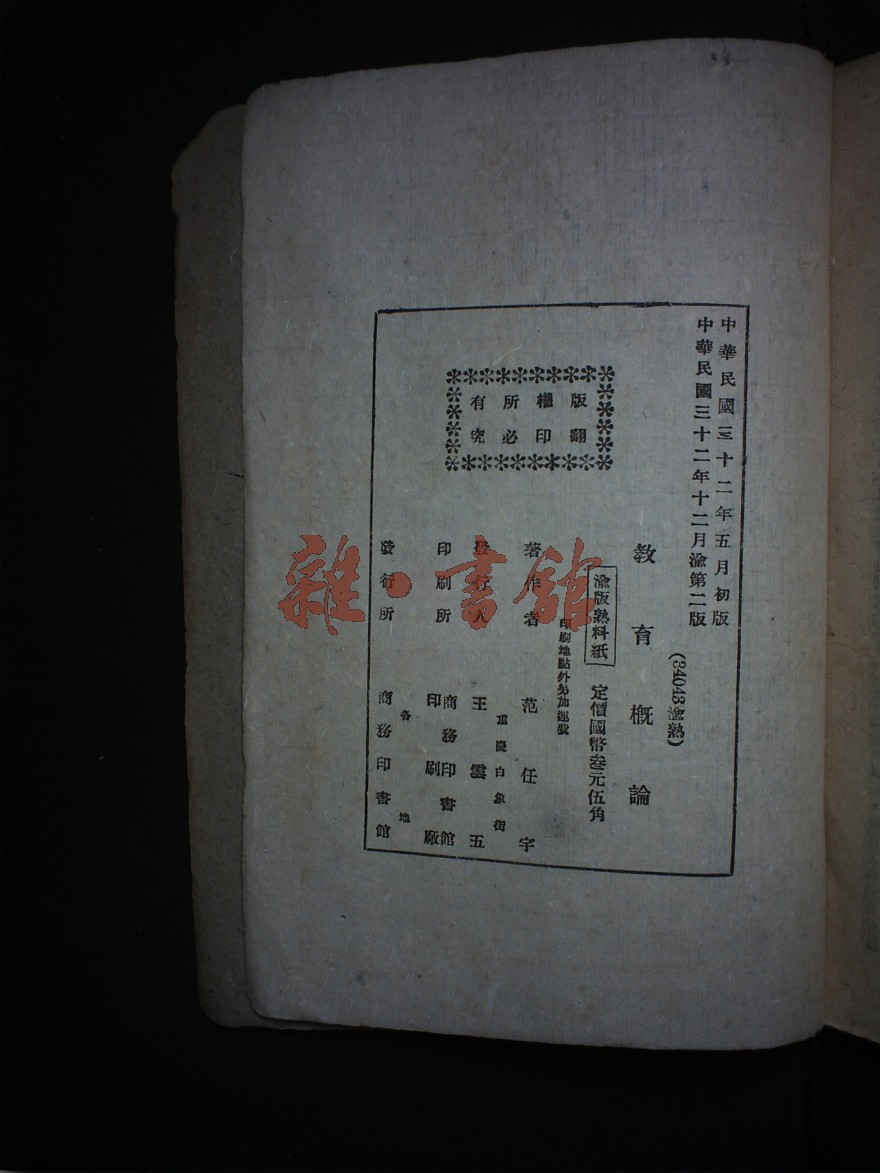 中華民國三十二年五月初版
中華民國三十二年十二月渝第二版
(34043渝熟)
教育概論
渝版熟料紙
定價國幣叁元伍角
印刷地點外另加運費
版權所有
翻印必究
著作者 范任宇
重慶白象街
發行人 王雲五
印刷所 商務印書館印刷廠
各地
發行所 商務印書館
雜·書館